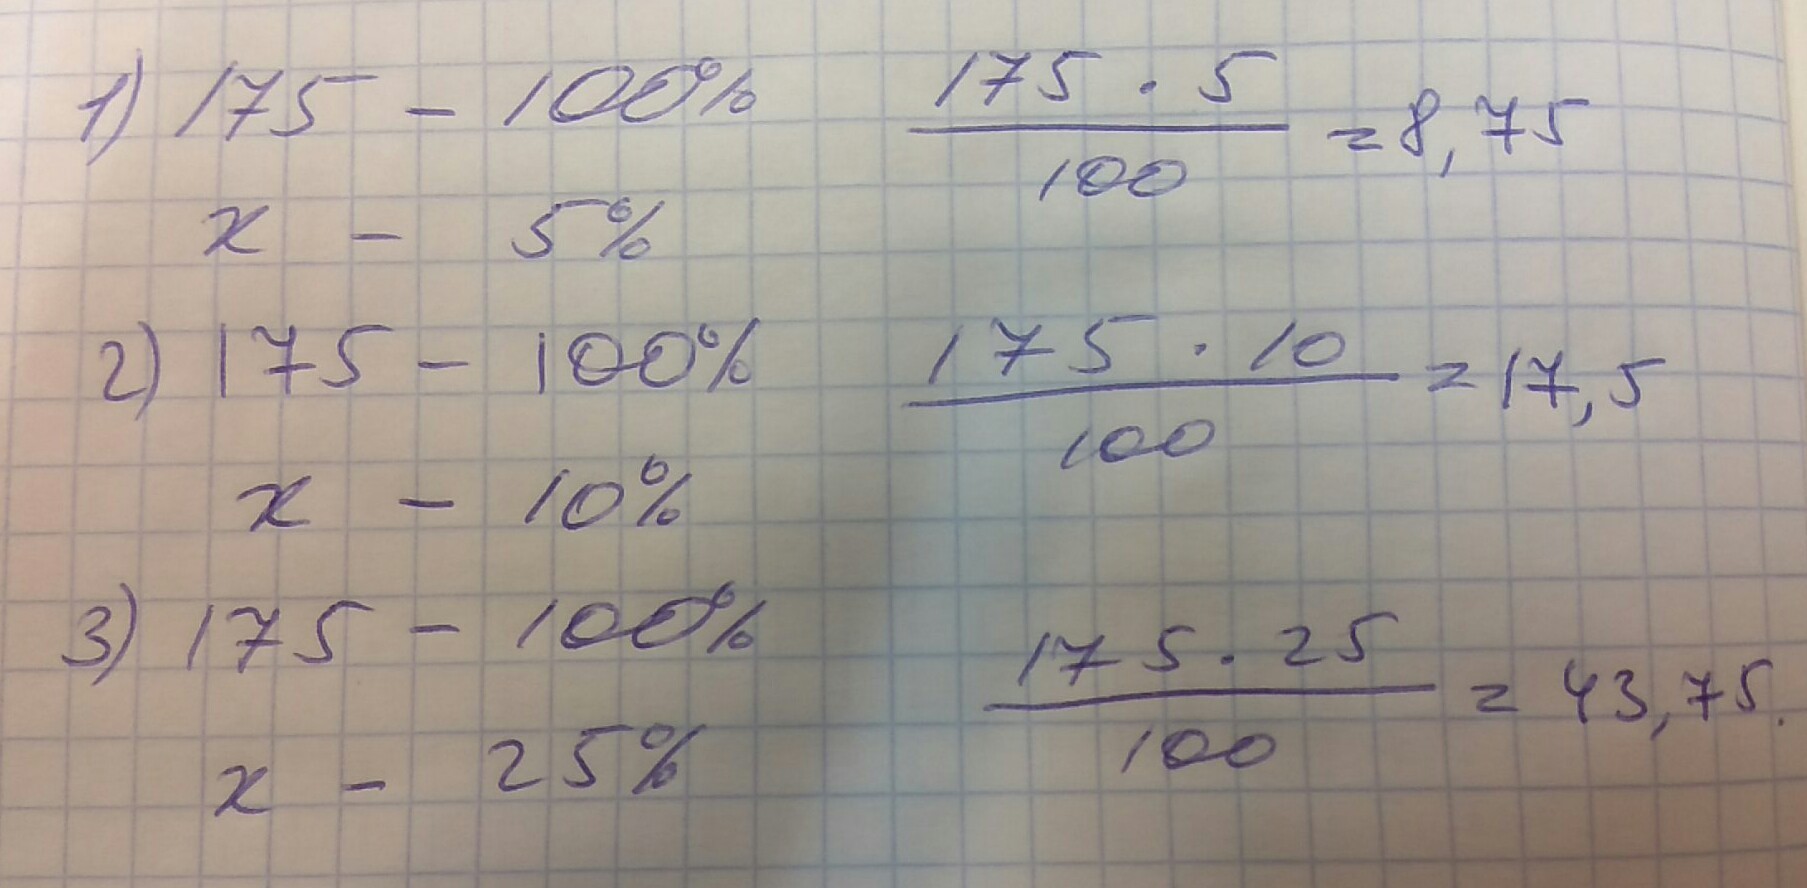 1) 175 - 100% 175 · 5 / 100 = 8,75
x - 5%
2) 175 - 100% 175 · 10 / 100 = 17,5
x - 10%
3) 175 - 100% 175 · 25 / 100 = 43,75.
x - 25%